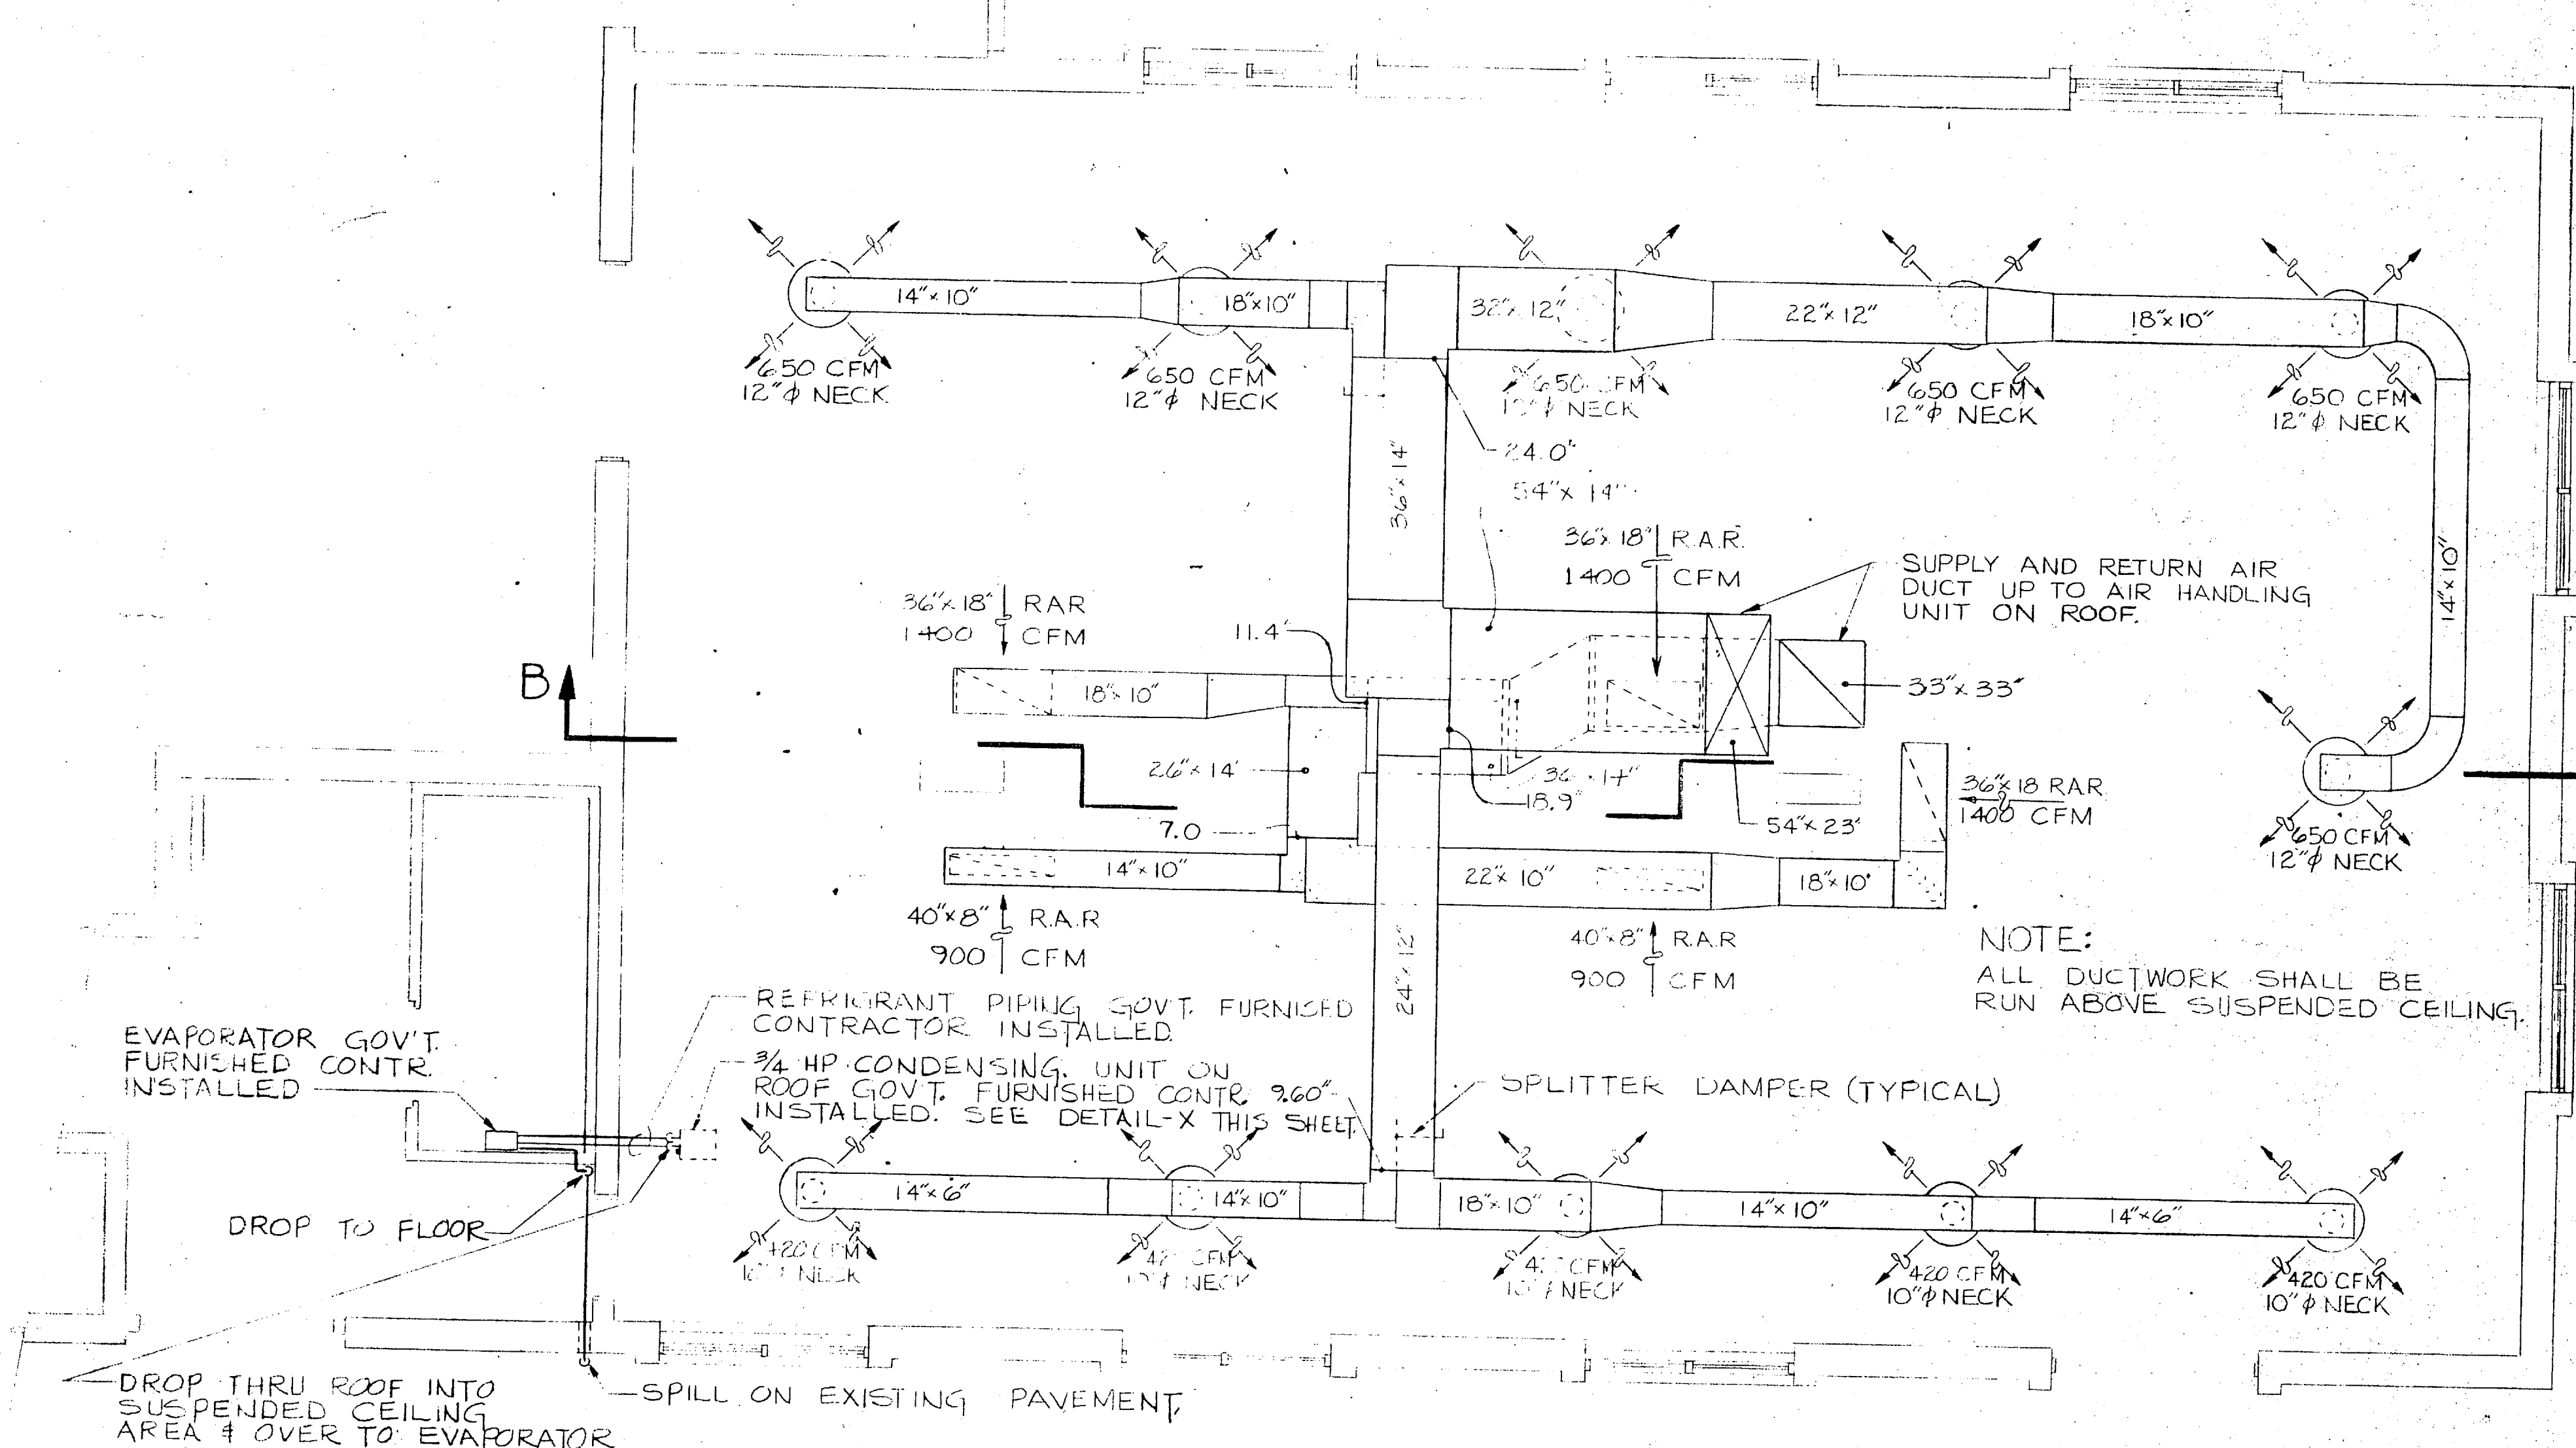 14"x10"
18"x10"
32"x12"
22"x12"
18"x10"
650 CFM
12"φ NECK
650 CFM
12"φ NECK
650 CFM
NECK
650 CFM
12"φ NECK
650 CFM
12"φ NECK
36"x14"
24.0"
54"x14"
36"x18" R.A.R.
1400 CFM
SUPPLY AND RETURN AIR
DUCT UP TO AIR HANDLING
UNIT ON ROOF.
14"x10"
36"x18" RAR
1400 CFM
11.4"
B
18"x10"
33"x33"
26"x14"
36"x14"
18.9"
54"x23"
36"x18 RAR
1400 CFM
7.0
650 CFM
12"φ NECK
14"x10"
22"x10"
18"x10"
40"x8" R.A.R
900 CFM
24"x12"
40"x8" R.A.R
900 CFM
NOTE:
ALL DUCTWORK SHALL BE
RUN ABOVE SUSPENDED CEILING.
REFRIGRANT PIPING GOV'T. FURNISED
CONTRACTOR INSTALLED.
EVAPORATOR GOV'T.
FURNISHED CONTR.
INSTALLED
3/4 HP CONDENSING. UNIT ON
ROOF GOV'T. FURNISHED CONTR.
INSTALLED. SEE DETAIL-X THIS SHEET.
9.60"
SPLITTER DAMPER (TYPICAL)
14"x6"
14"x10"
18"x10"
14"x10"
14"x6"
DROP TO FLOOR
420 CFM
NECK
CFM
NECK
CFM
NECK
420 CFM
10"φ NECK
420 CFM
10"φ NECK
DROP THRU ROOF INTO
SUSPENDED CEILING
AREA & OVER TO EVAPORATOR
SPILL ON EXISTING PAVEMENT.